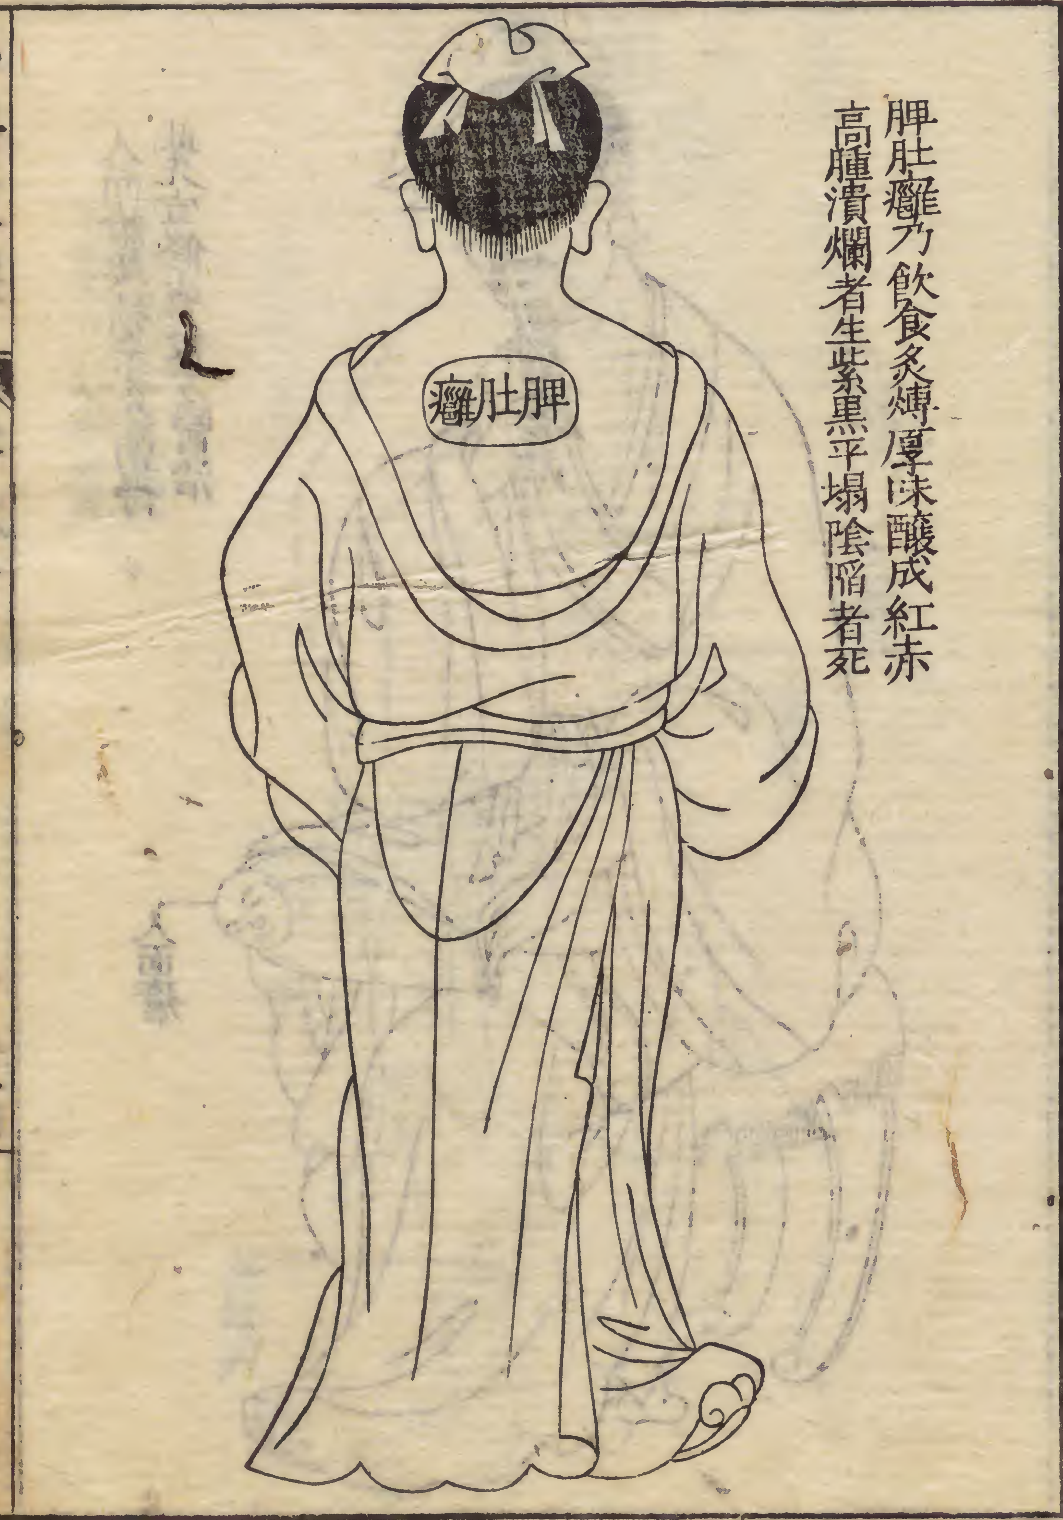 脾肚癰乃飲食炙煿厚味釀成紅赤
高腫潰爛者生紫黑平塌陰陷者死
脾肚癰